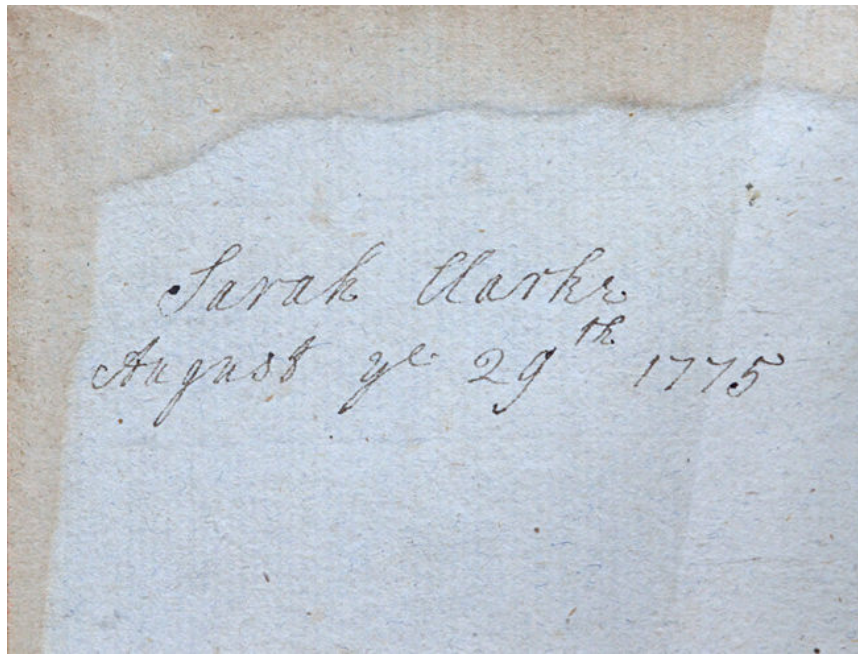 Sarah Clarke
August ye 29th 1775